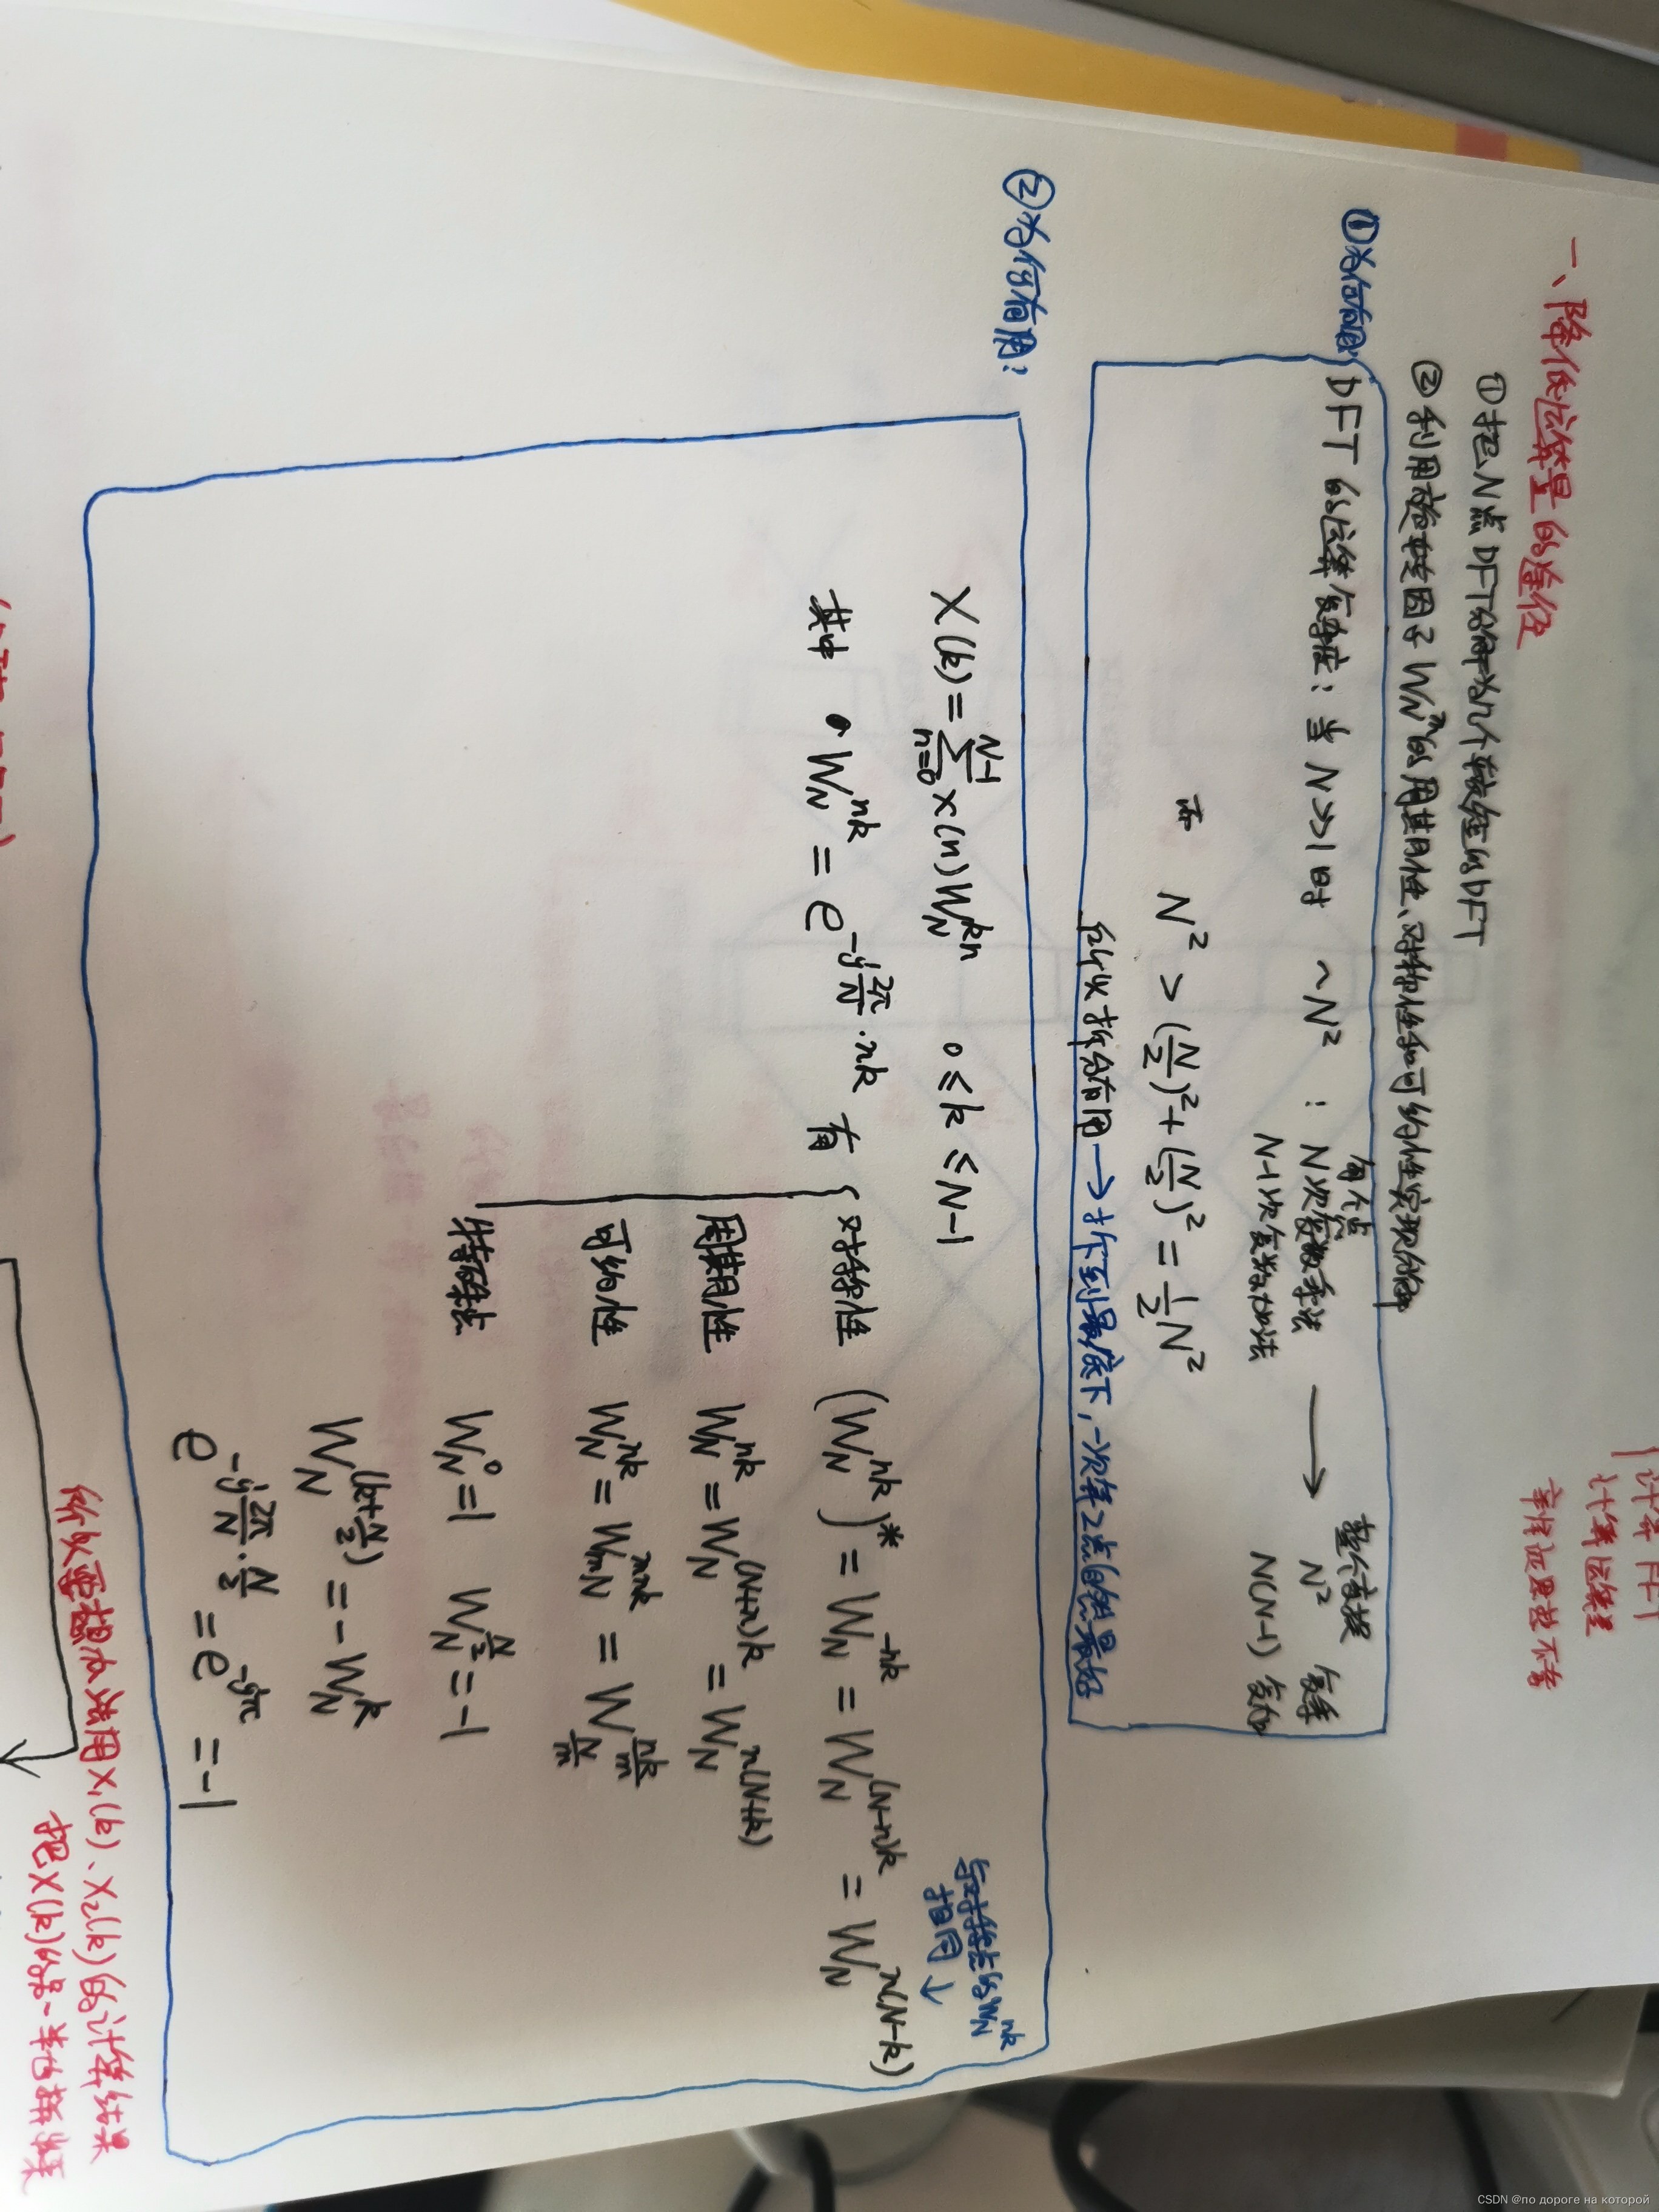 一、降低运算量的途径
①把N点DFT分解为几个较短的DFT
②利用旋转因子W_N^m的周期性、对称性和可约性实现分解
①为何有用:
DFT的运算复杂度：当 N>>1时 ~N² :
每个点
N次复数乘法
N-1次复数加法
⟶
整个变换
N² 复乘
N(N-1) 复加
而 N² > (N/2)² + (N/2)² = 1/2 N²
所以拆分有用 → 拆到最底下，一次算2点的是最好
②为何有用：
X(k) = Σ_{n=0}^{N-1} x(n) W_N^{kn} 0 ≤ k ≤ N-1
与对称点的W_N^{nk}
相同↓
其中 • W_N^{nk} = e^{-j 2π/N · nk} 有
对称性 (W_N^{nk})* = W_N^{-nk} = W_N^{(N-n)k} = W_N^{n(N-k)}
周期性 W_N^{nk} = W_N^{(N+n)k} = W_N^{n(N+k)}
可约性 W_N^{nk} = W_{mN}^{mnk} = W_{N/m}^{nk/m}
特殊点 W_N^0 = 1 W_N^{N/2} = -1
W_N^{(k+N/2)} = -W_N^k
e^{-j 2π/N · N/2} = e^{-jπ} = -1
所以要想办法用X₁(k)、X₂(k)的计算结果
把X(k)的另一半也拼出来
计算运算量
CSDN @по дороге на которой